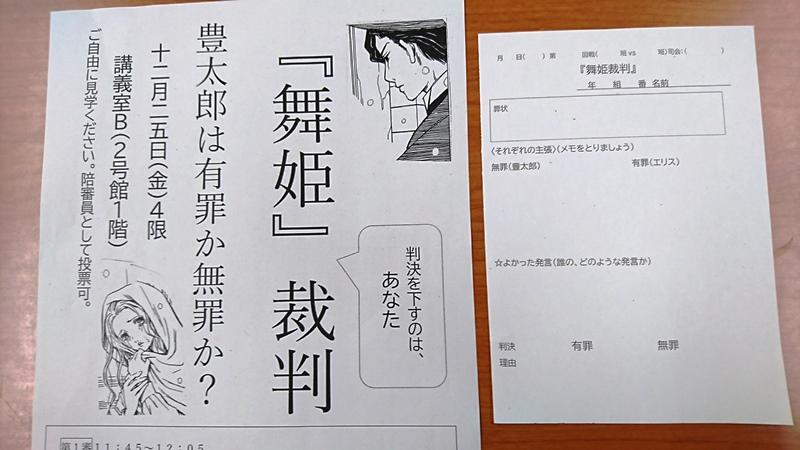 『舞姫』裁判
豊太郎は有罪か無罪か?
十二月二五日(金)4限
講義室B(2号館1階)
ご自由に見学ください。陪審員として投票可。
判決を下すのは、
あなた
第1審 11:45~12:05
月 日( ) 第 回戦( 班 vs 班)司会:( )
『舞姫裁判』
年 組 番 名前
罪状
〈それぞれの主張〉(メモをとりましょう)
無罪(豊太郎) 有罪(エリス)
☆よかった発言(誰の、どのような発言か)
判決 有罪 無罪
理由